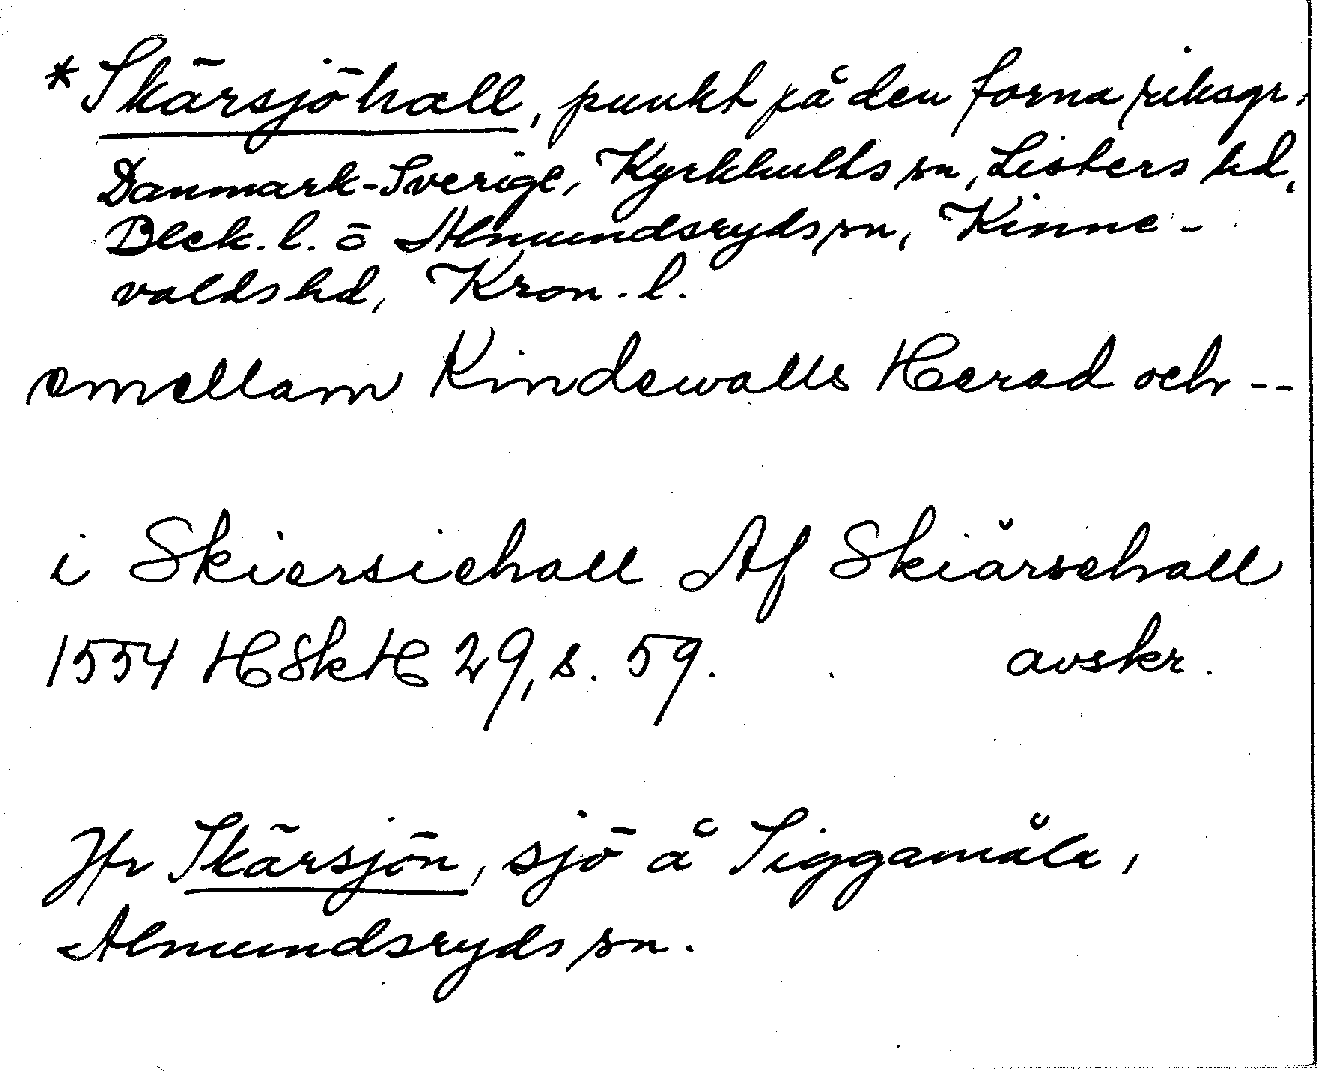 *Skärsjöhall, punkt på den forna riksgr.
Danmark-Sverige, Kyrkhults sn, Listers hd,
Blek. l. o Almundsryds sn, Kinne-
valds hd, Kron. l.
emellam Kindewalls Herad och --
i Skiersiehall Af Skiärsehall
1554 HSkH 29, s. 59. avskr.
Jfr Skärsjön, sjö å Siggamåla,
Almundsryds sn.